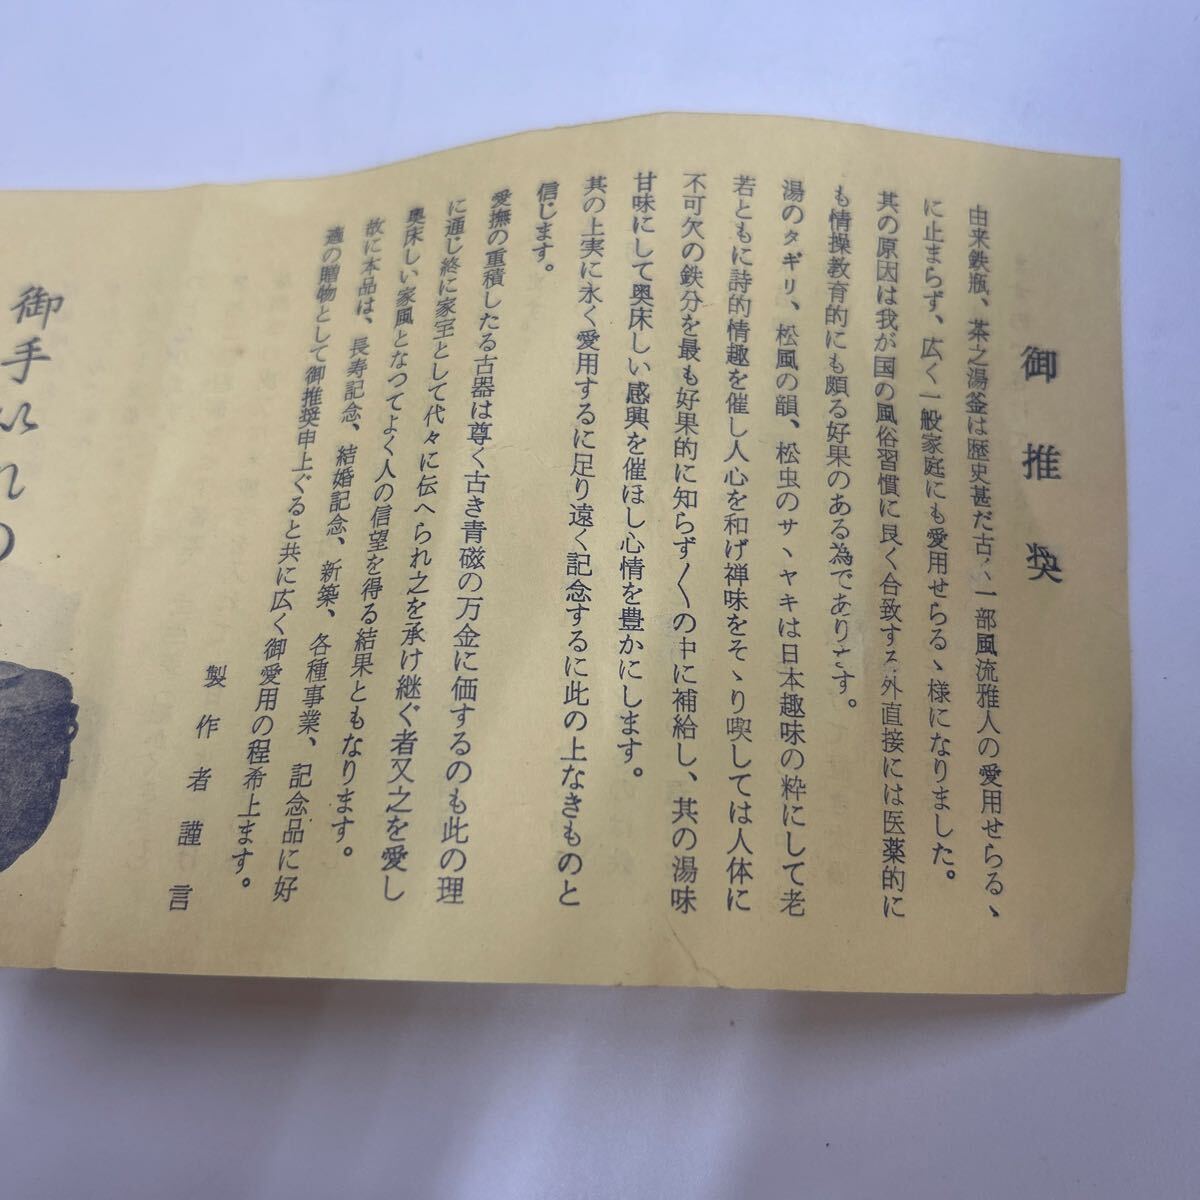 御推奨
由来鉄瓶、茶之湯釜は歴史甚だ古く、一部風流雅人の愛用せらるゝ
に止まらず、広く一般家庭にも愛用せらるゝ様になりました。
其の原因は我が国の風俗習慣に良く合致する外直接には医薬的に
も情操教育的にも頗る好果のある為であります。
湯のタギリ、松風の韻、松虫のサヽヤキは日本趣味の粋にして老
若ともに詩的情趣を催し人心を和げ禅味をそゝり喫しては人体に
不可欠の鉄分を最も好果的に知らず〱の中に補給し、其の湯味
甘味にして奥床しい感興を催ほし心情を豊かにします。
其の上実に永く愛用するに足り遠く記念するに此の上なきものと
信じます。
愛撫の重積したる古器は尊く古き青磁の万金に価するのも此の理
に通じ終に家宝として代々に伝へられ之を承け継ぐ者又之を愛し
奥床しい家風となつてよく人の信望を得る結果ともなります。
故に本品は、長寿記念、結婚記念、新築、各種事業、記念品に好
適の贈物として御推奨申上ぐると共に広く御愛用の程希上ます。
製作者謹言
御手以れの